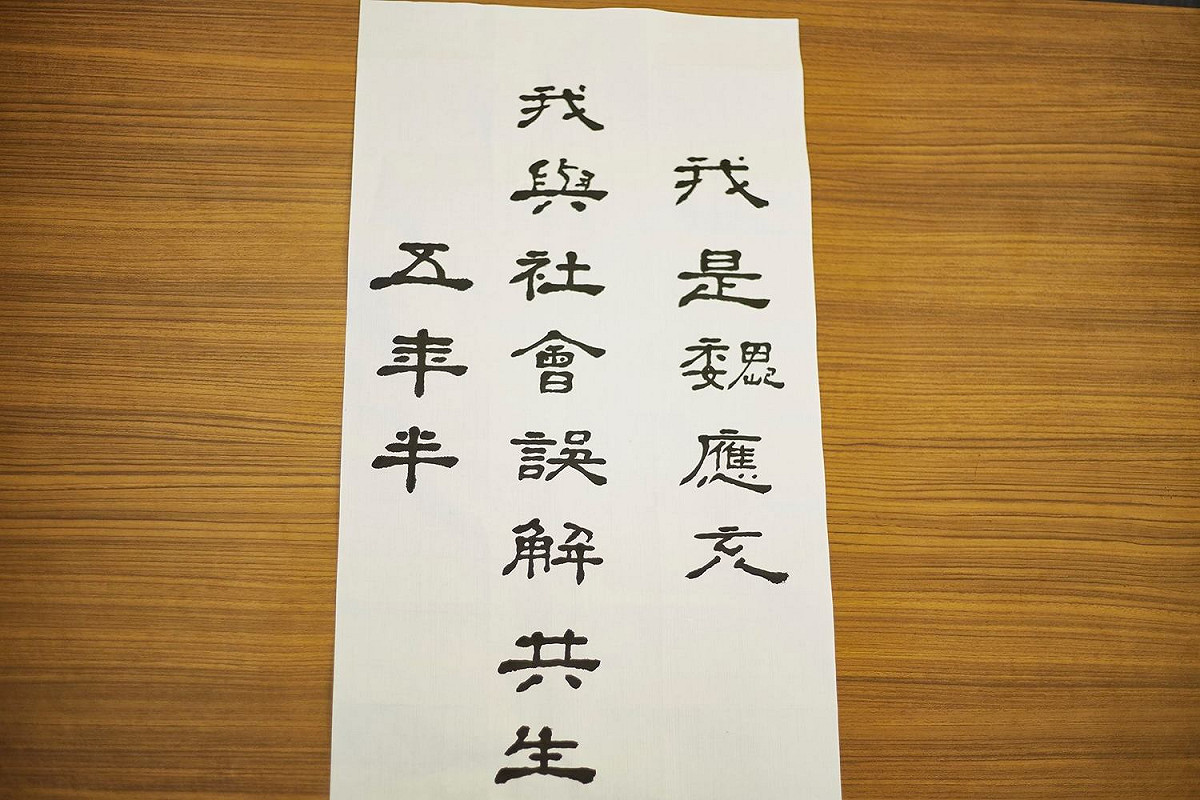 我是魏應充
我與社會誤解共生
五年半